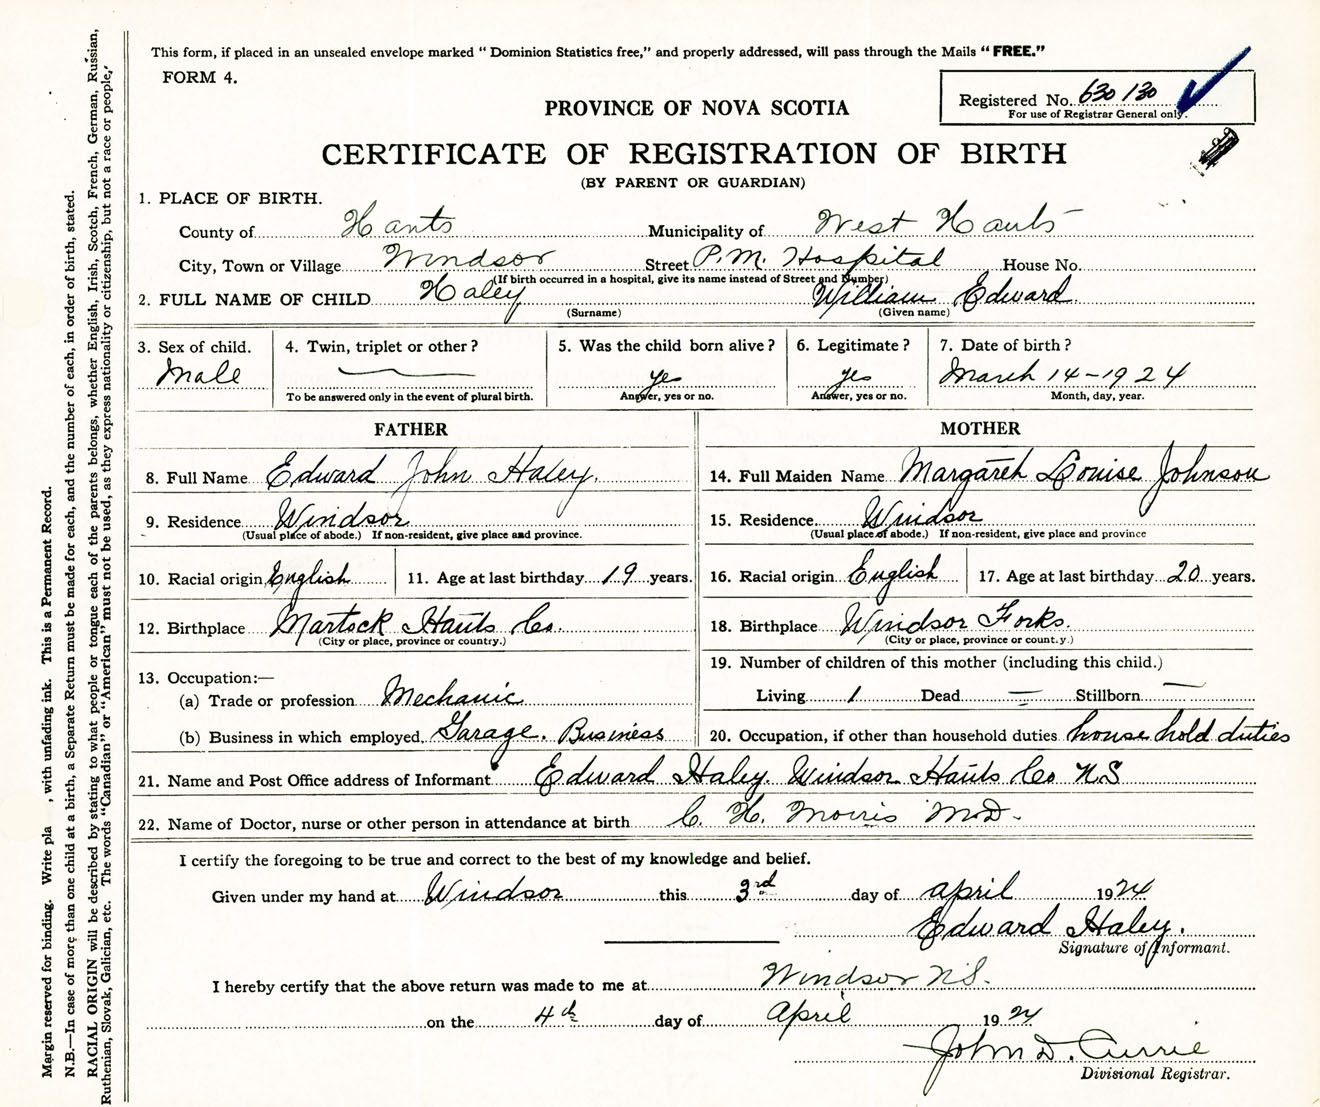 This form, if placed in an unsealed envelope marked “ Dominion Statistics free,” and properly addressed, will pass through the Mails “ FREE.”
FORM 4.
Registered No. 630130
For use of Registrar General only.
PROVINCE OF NOVA SCOTIA
CERTIFICATE OF REGISTRATION OF BIRTH
(BY PARENT OR GUARDIAN)
1. PLACE OF BIRTH.
County of Hants Municipality of West Hants
City, Town or Village Windsor Street P.M. Hospital House No.
(If birth occurred in a hospital, give its name instead of Street and Number)
2. FULL NAME OF CHILD Haley William Edward
(Surname) (Given name)
3. Sex of child. 4. Twin, triplet or other ? 5. Was the child born alive ? 6. Legitimate ? 7. Date of birth ?
Male yes yes March 14-1924
To be answered only in the event of plural birth. Answer, yes or no. Answer, yes or no. Month, day, year.
FATHER MOTHER
8. Full Name Edward John Haley. 14. Full Maiden Name Margaret Louise Johnson
9. Residence Windsor 15. Residence Windsor
(Usual place of abode.) If non-resident, give place and province. (Usual place of abode.) If non-resident, give place and province
10. Racial origin English 11. Age at last birthday 19 years. 16. Racial origin English 17. Age at last birthday 20 years.
12. Birthplace Martock Hants Co. 18. Birthplace Windsor Forks.
(City or place, province or country.) (City or place, province or count.y.)
19. Number of children of this mother (including this child.)
13. Occupation:—
(a) Trade or profession Mechanic Living 1 Dead — Stillborn —
(b) Business in which employed, Garage. Business 20. Occupation, if other than household duties house hold duties
21. Name and Post Office address of Informant Edward Haley Windsor Hants Co N.S
22. Name of Doctor, nurse or other person in attendance at birth C. H. Morris M.D.
I certify the foregoing to be true and correct to the best of my knowledge and belief.
Given under my hand at Windsor this 3rd day of april 1924
Edward Haley.
Signature of Informant.
I hereby certify that the above return was made to me at Windsor N.S.
on the 4th day of April 1924
John D. Currie
Divisional Registrar.
Margin reserved for binding. Write pla , with unfading ink. This is a Permanent Record.
N.B.—In case of more than one child at a birth, a Separate Return must be made for each, and the number of each, in order of birth, stated.
RACIAL ORIGIN will be described by stating to what people or tongue each of the parents belongs, whether English, Irish, Scotch, French, German, Russian,
Ruthenian, Slovak, Galician, etc. The words “Canadian” or “American” must not be used, as they express nationality or citizenship, but not a race or people,